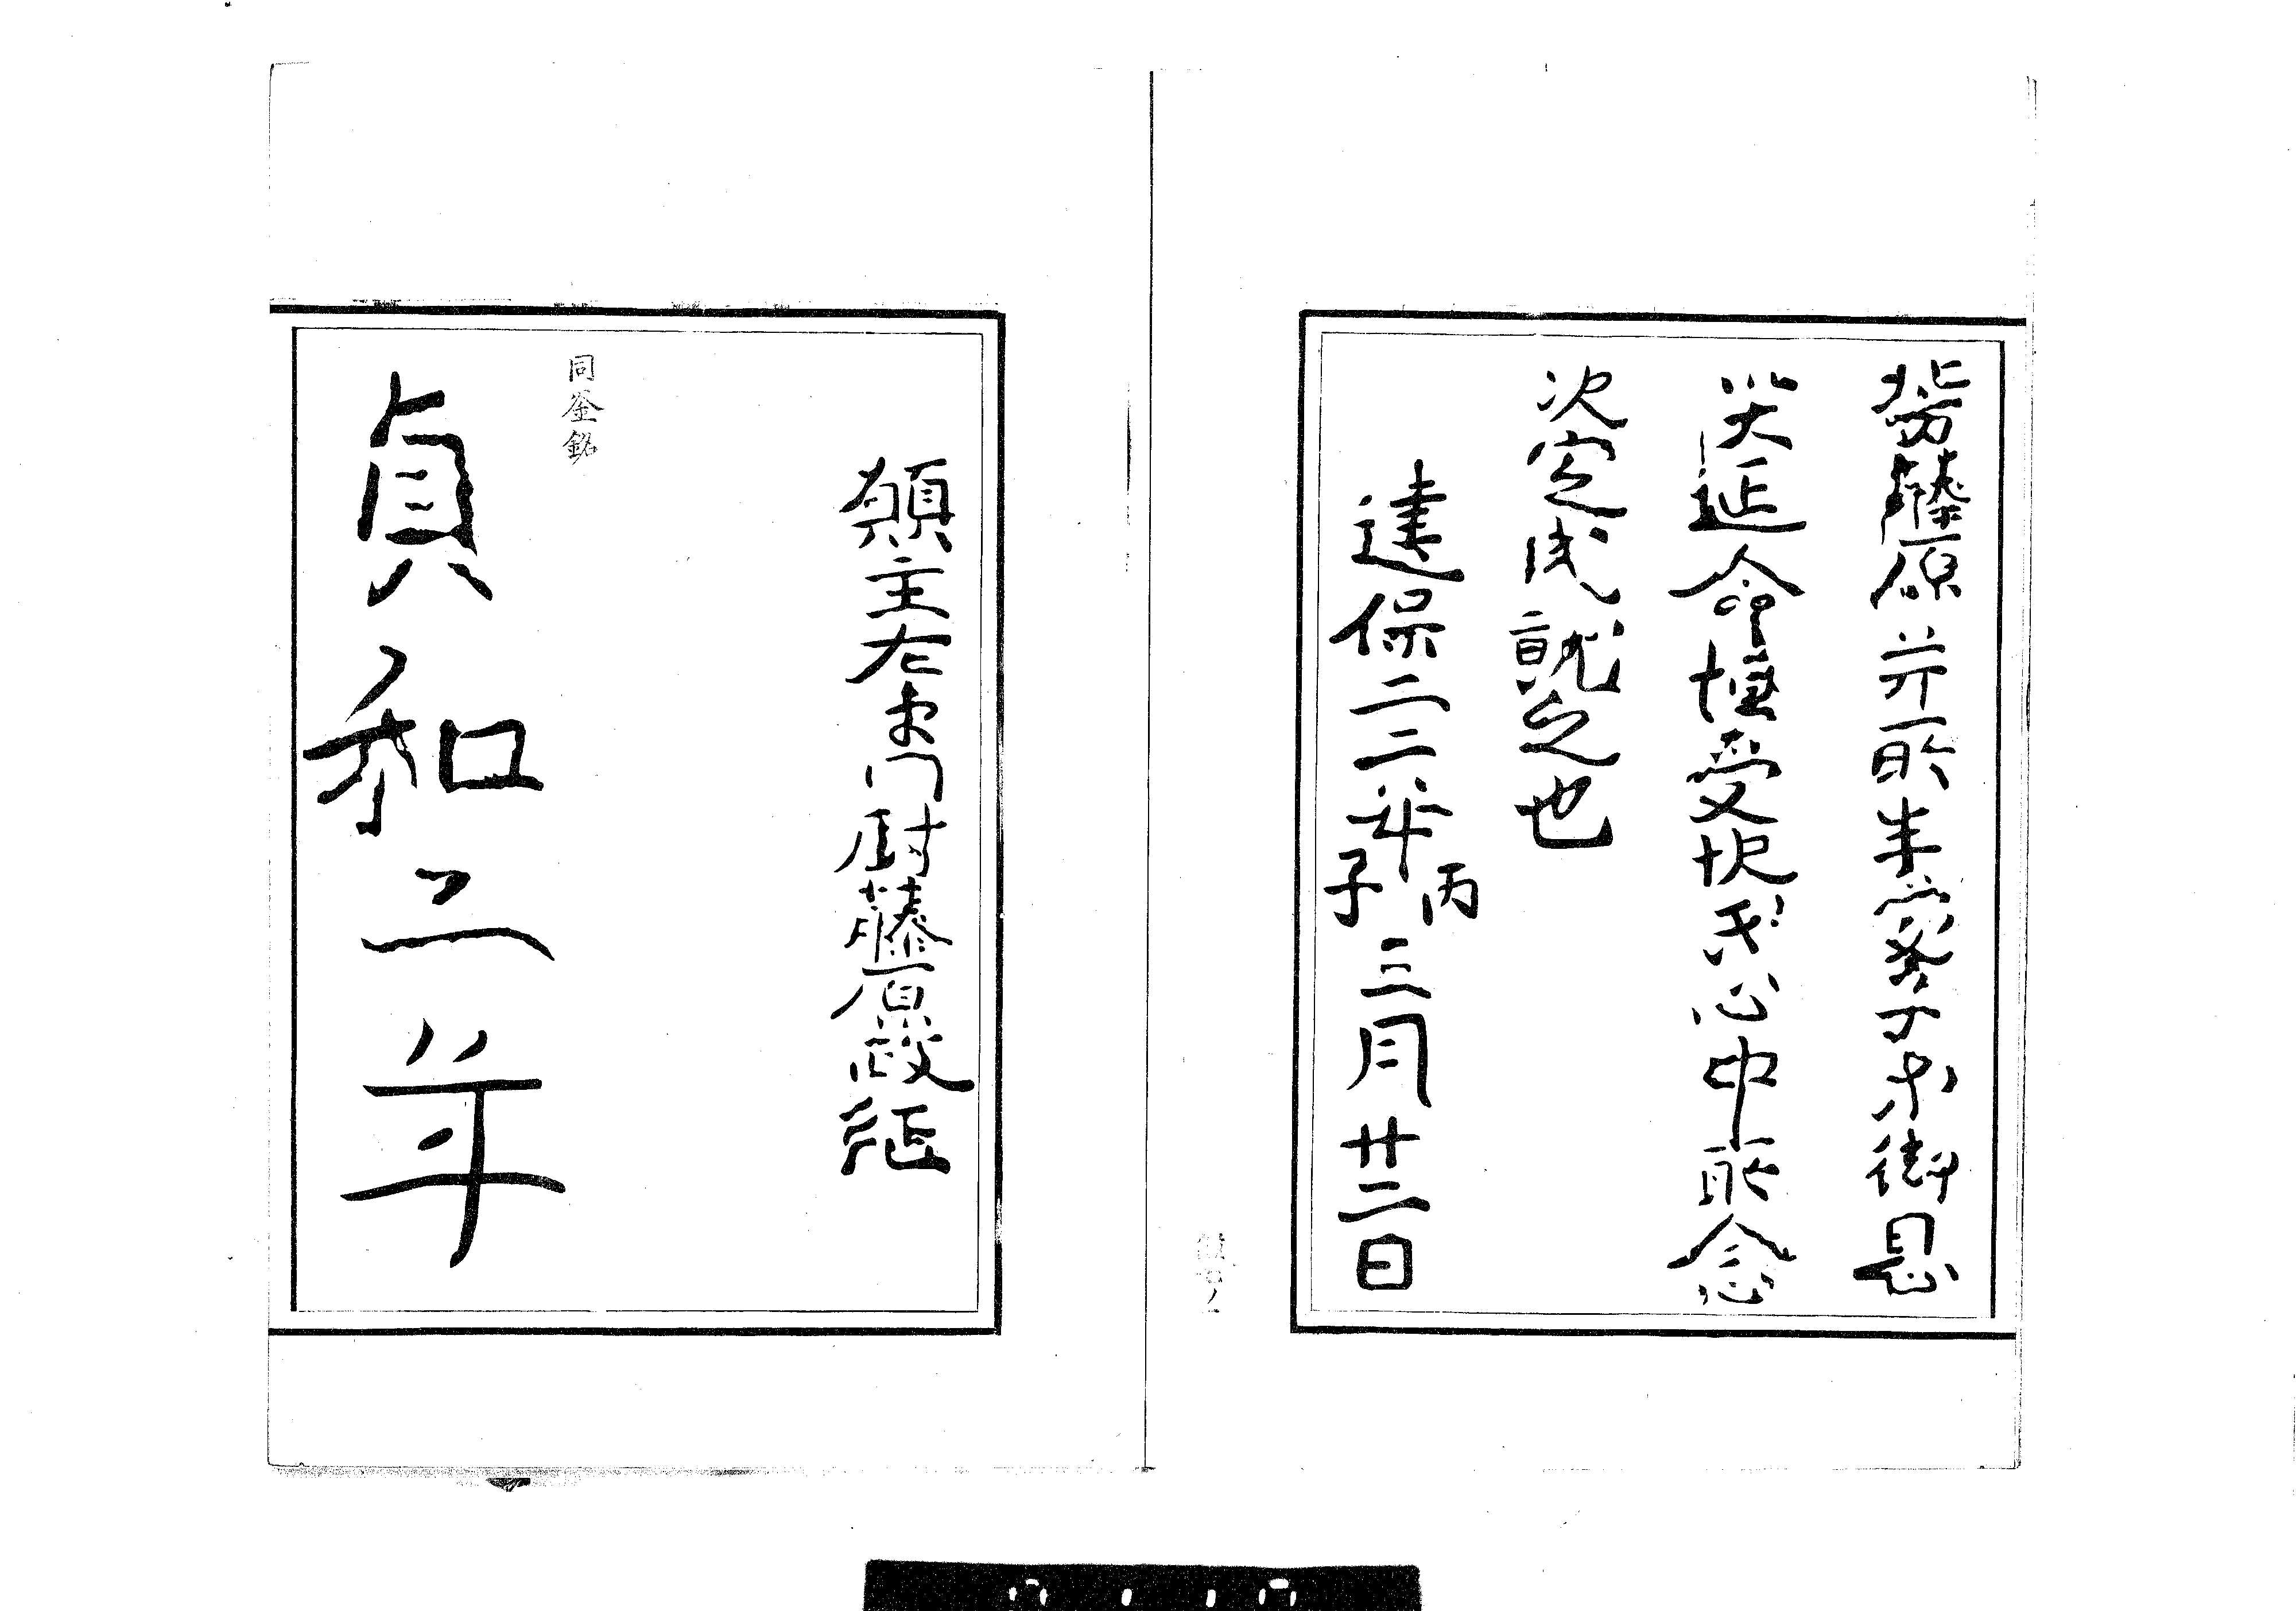 藤原并所生愛子等御息
災延命増受快氏心中所念
决定成就之也
建保二二年丙子三月廿二日
願主左衛門尉藤原政延
同釜銘
貞和二年